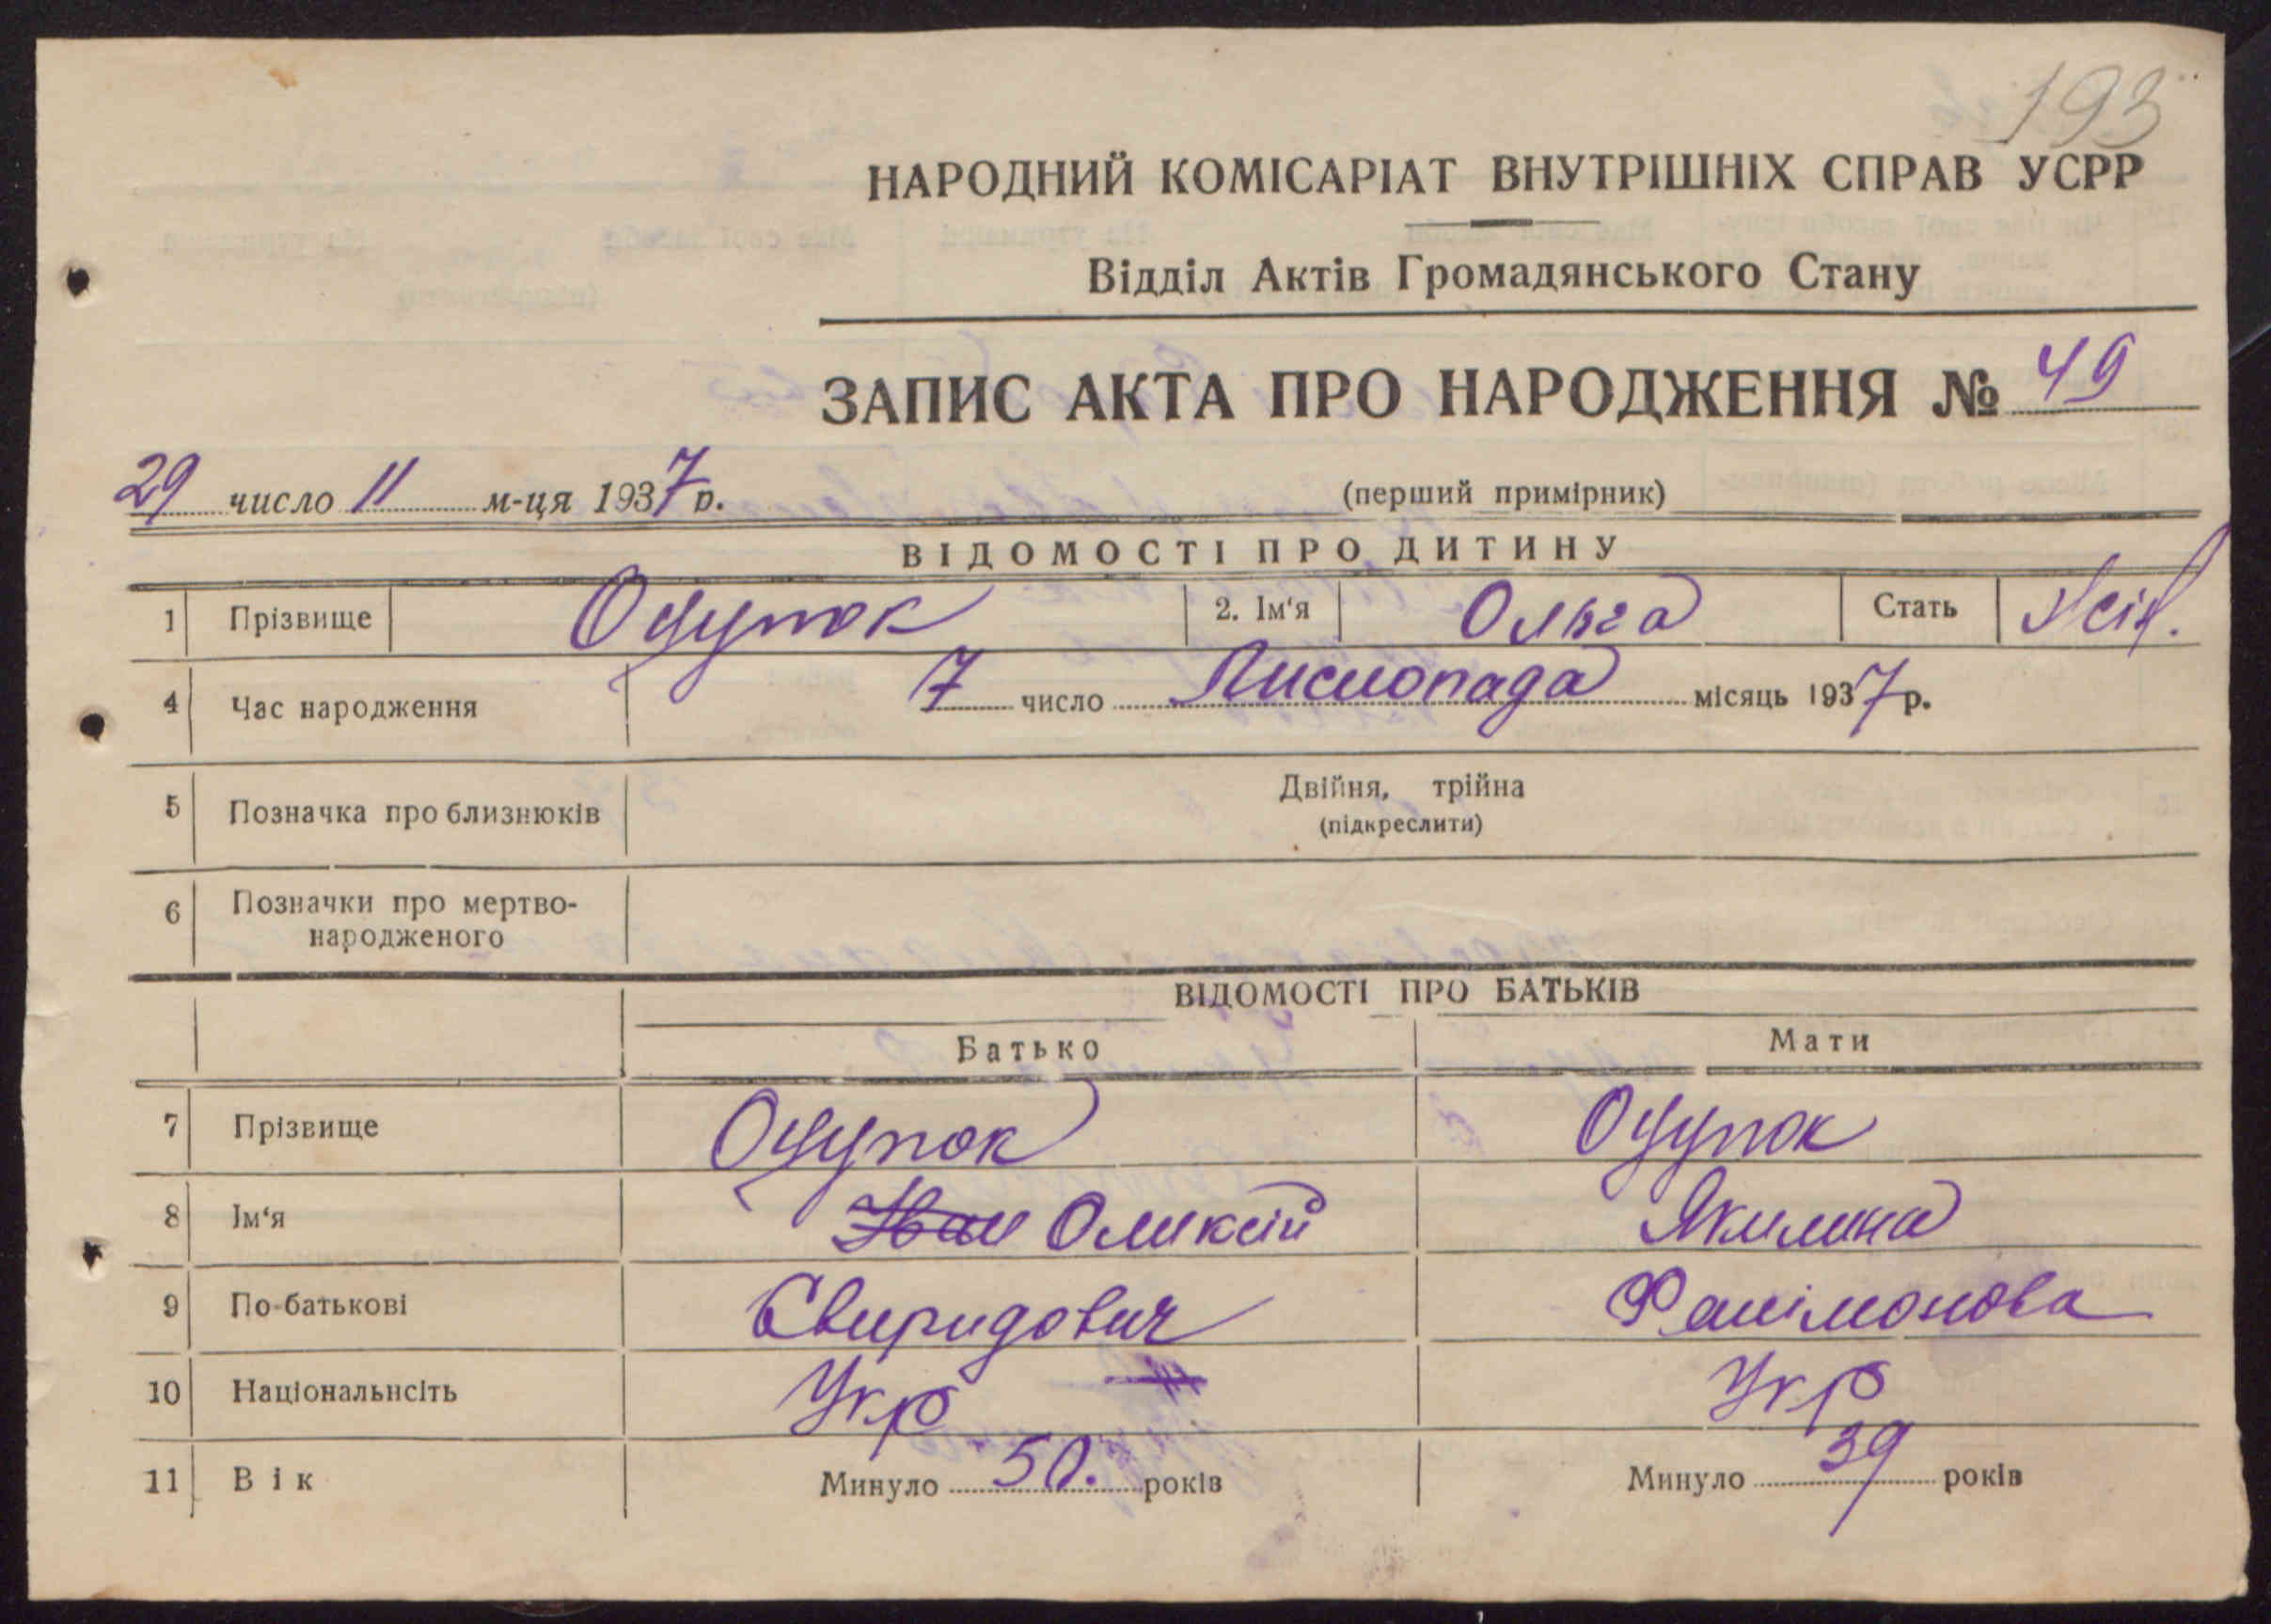 193
НАРОДНИЙ КОМІСАРІАТ ВНУТРІШНІХ СПРАВ УСРР
Відділ Актів Громадянського Стану
ЗАПИС АКТА ПРО НАРОДЖЕННЯ № 49
29 число 11 м-ця 1937 р. (перший примірник)
ВІДОМОСТІ ПРО ДИТИНУ
1 Прізвище 2. Ім'я Ольга Стать
4 Час народження 7 число Листопада місяць 1937 р.
5 Позначка про близнюків Двійня, трійна
(підкреслити)
6 Позначки про мертво-
народженого
ВІДОМОСТІ ПРО БАТЬКІВ
Батько Мати
7 Прізвище
8 Ім'я Іван Олексій Якилина
9 По-батькові Свиридович
10 Національнсіть Укр Укр
11 Вік Минуло 50. років Минуло 39 років